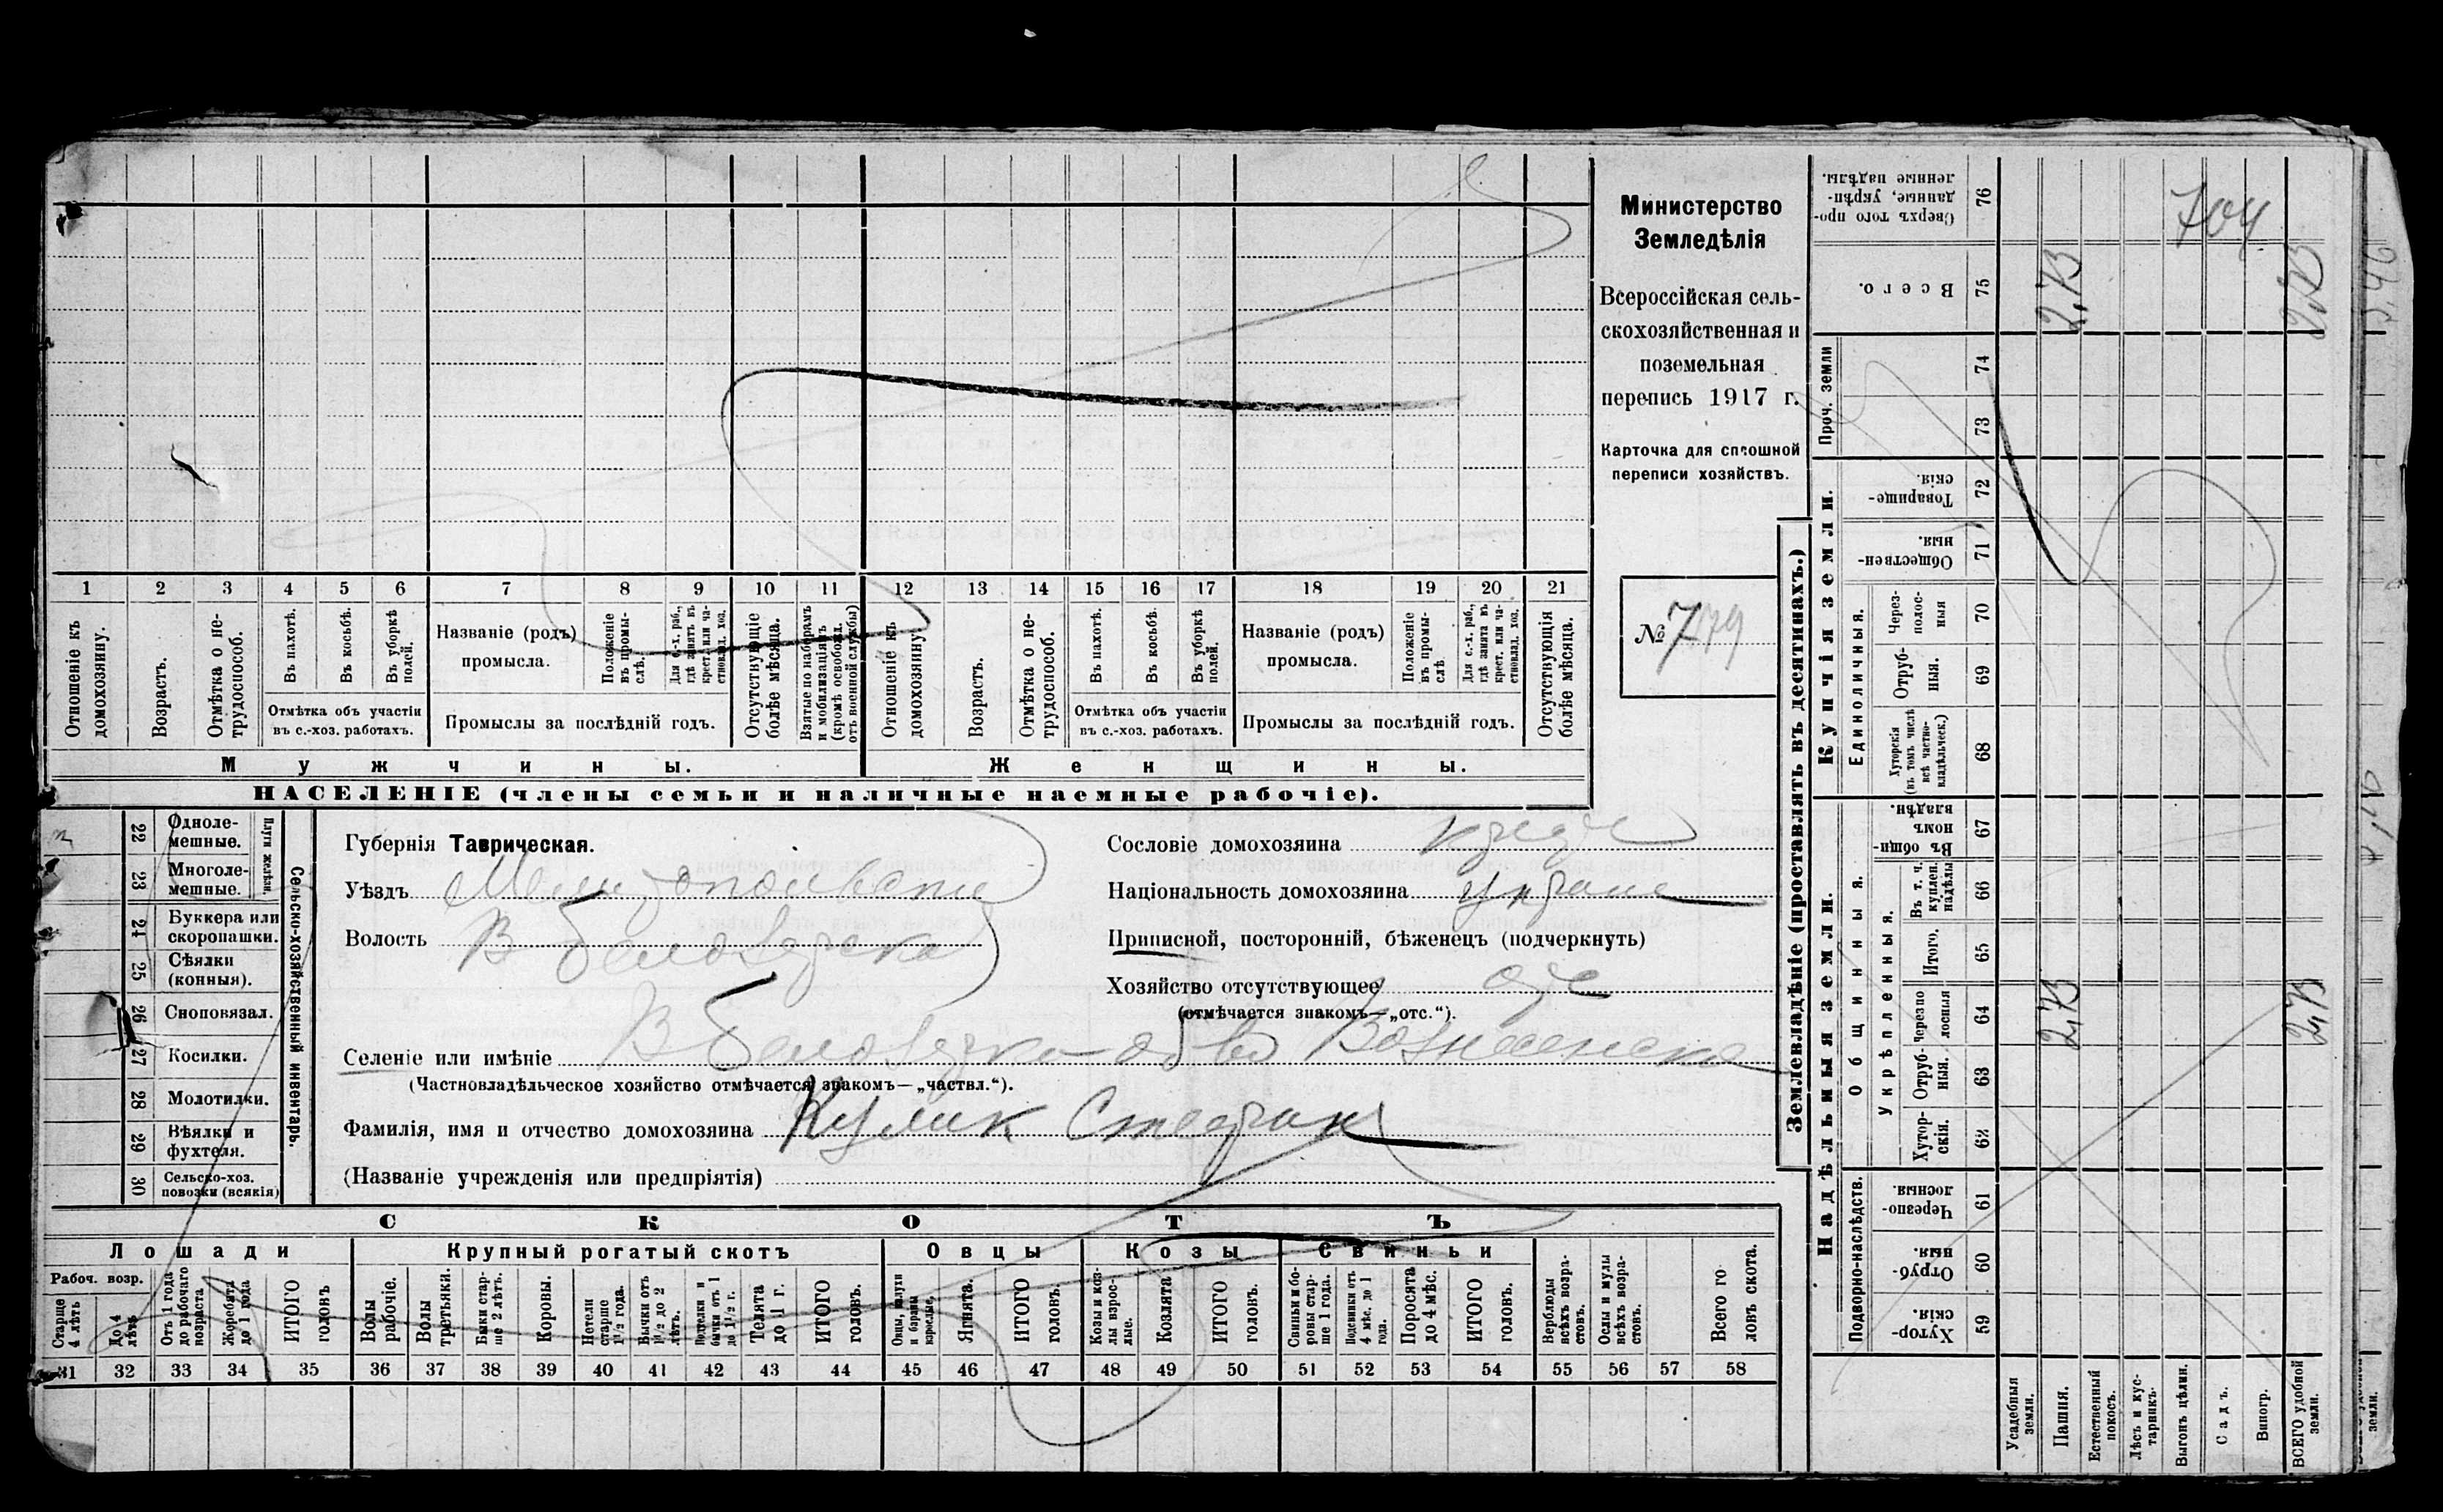 Министерство
Земледѣлія
Всероссійская сель-
скохозяйственная и
поземельная
перепись 1917 г.
Карточка для сплошной
переписи хозяйствъ.
№ 779
1 2 3 4 5 6 7 8 9 10 11 12 13 14 15 16 17 18 19 20 21
Отношеніе къ домохозяину.
Возрастъ.
Отмѣтка о не-трудоспособ.
Въ пахотѣ.
Въ косьбѣ.
Въ уборкѣ полей.
Отмѣтка объ участіи
въ с.-хоз. работахъ.
Названіе (родъ)
промысла.
Положеніе въ промы-слѣ.
Для с.-х. раб., гдѣ занятъ въ крест. или ча-стновлад. хоз.
Промыслы за послѣдній годъ.
Отсутствующіе болѣе мѣсяца.
Взятые по наборамъ и мобилизаціямъ (кромѣ освобожд. отъ военной службы)
Отношеніе къ домохозяину.
Возрастъ.
Отмѣтка о не-трудоспособ.
Въ пахотѣ.
Въ косьбѣ.
Въ уборкѣ полей.
Отмѣтка объ участіи
въ с.-хоз. работахъ.
Названіе (родъ)
промысла.
Положеніе въ промы-слѣ.
Для с.-х. раб., гдѣ занята въ крест. или ча-стновлад. хоз.
Промыслы за послѣдній годъ.
Отсутствующія болѣе мѣсяца.
Мужчины.
Женщины.
НАСЕЛЕНІЕ (члены семьи и наличные наемные рабочіе).
22 Одноле-мешные.
23 Многоле-мешные.
Плуги желѣзн.
24 Буккера или скоропашки.
25 Сѣялки (конныя).
26 Сноповязал.
27 Косилки.
28 Молотилки.
29 Вѣялки и фухтеля.
30 Сельско-хоз. повозки (всякія)
Сельско-хозяйственный инвентарь.
Губернія Таврическая.
Уѣздъ Мелитопольскій
Волость В Белозерска
Селеніе или имѣніе В Белозерка об во Вознесенска
(Частновладѣльческое хозяйство отмѣчается знакомъ—„частвл.“).
Фамилія, имя и отчество домохозяина Кулик Стефан
(Названіе учрежденія или предпріятія)
Сословіе домохозяина
Національность домохозяина украин
Приписной, посторонній, бѣженецъ (подчеркнуть)
Хозяйство отсутствующее
(отмѣчается знакомъ—„отс.“).
СКОТЪ
Лошади
Крупный рогатый скотъ
Овцы
Козы
Свиньи
Рабоч. возр.
Старше 4 лѣтъ
До 4 лѣтъ
Отъ 1 года до рабочаго возраста
Жеребята до 1 года
ИТОГО головъ
Волы рабочіе.
Волы третьяки.
Быки стар-ше 2 лѣтъ.
Коровы.
Нетели старше 1½ года.
Бычки отъ 1½ до 2 лѣтъ.
Нетелки и бычки отъ 1 до 1½ г.
Телята до 1 г.
ИТОГО головъ.
Овцы, валухи и бараны взрослые.
Ягнята.
ИТОГО головъ.
Козы и коз-лы взрос-лые.
Козлята
ИТОГО головъ.
Свиньи и бо-ровы стар-ше 1 года.
Подсвинки отъ 4 мѣс. до 1 года.
Поросята до 4 мѣс.
ИТОГО головъ.
Верблюды всѣхъ возра-стовъ.
Ослы и мулы всѣхъ возра-стовъ.
Всего го ловъ скота.
31 32 33 34 35 36 37 38 39 40 41 42 43 44 45 46 47 48 49 50 51 52 53 54 55 56 57 58
Землевладѣніе (проставлять въ десятинахъ.)
Купчія земли.
Надѣльныя земли.
Сверхъ того про-данные, укрѣп-ленные надѣлы. 76
704
Всего. 75
2,73
2,73
Проч. земли
74
73
Товарище-скія. 72
Обществен-ныя. 71
Единоличныя.
Через-полос-ныя 70
Отруб-ныя. 69
Хуторскія (въ томъ числѣ всѣ частно-владѣльческ.) 68
Общинныя.
Въ общи-номъ владѣн. 67
Укрѣпленныя.
Въ т. ч. куплен. надѣлы 66
Итого. 65
Черезпо лосныя 64
2,73
2,73
Отруб-ныя. 63
Хутор-скія. 62
Подворно-наслѣдств.
Черезпо-лосныя. 61
Отруб-ныя. 60
Хутор-скія. 59
Усадебныя земли.
Пашня.
Естественный покосъ.
Лѣсъ и кус-тарникъ.
Выгонъ цѣлин.
Садъ.
Виногр.
ВСЕГО удобной земли.
земли.